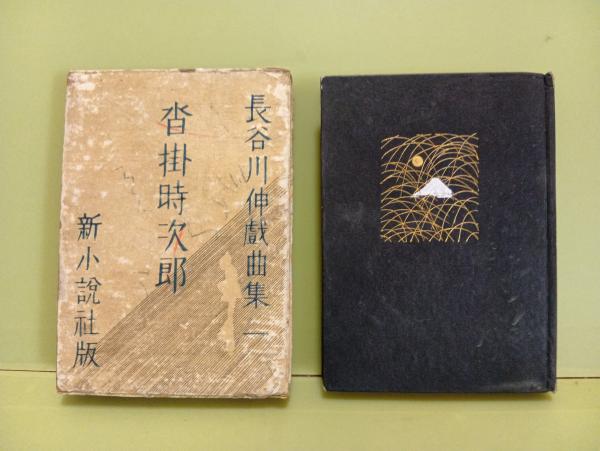 長谷川伸戲曲集一
沓掛時次郎
新小說社版